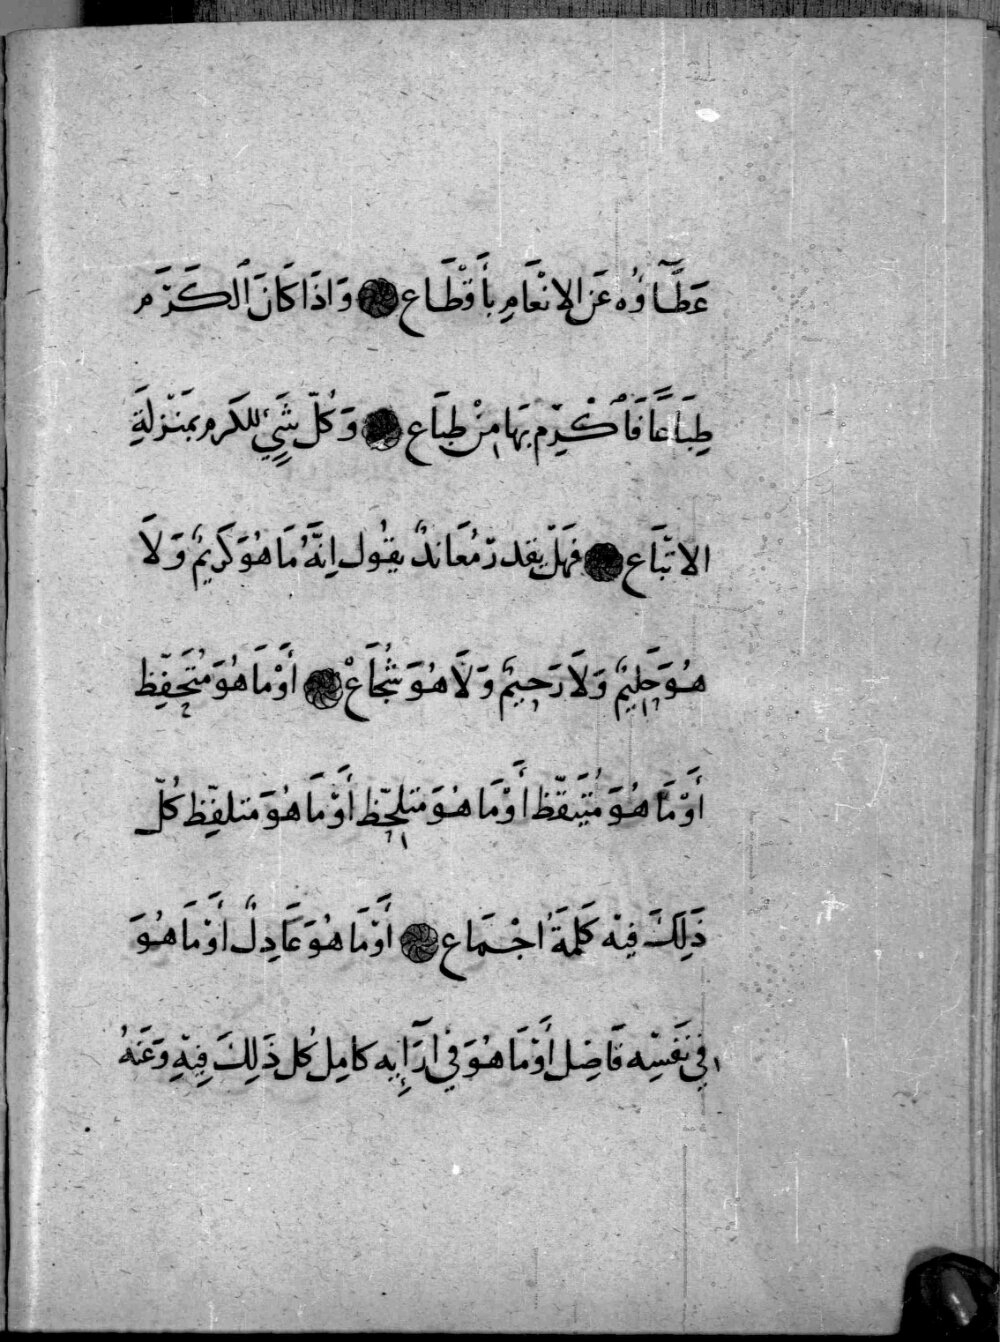 عَطَّآؤُه عَنِ الإنْعَامِ بأَقْطَاع وَاذَا كَانَ ٱلكَرَم
طِبَاعًا فَأكْرِم بهَا مِنْ طِبَاع وَكُلّ شَيْءٍ للكَرم بمَنْزلَةِ
الاتبَاع فهَلْ يقدر مُعَاندٌ يقُول اِنَّهُ مَا هُوَ كَرِيمٌ وَلَا
هُوَ حَلِيمٌ وَلَا رَحِيمٌ وَلَا هُوَ شُجَاعْ أَوْ مَا هُوَ مُتَحَفِّظ
أَوْ مَا هُوَ مُتَيَقّظ أَوْ مَا هُوَ متلحّظ أَوْ مَا هُوَ متلفِّظ كُلّ
ذَلِكَ فِيْه كَلمَةُ اجْمَاع أَوْ مَا هُوَ عَادِلٌ أَوْ مَا هُوَ
في نَفْسِه فَاضِل أَوْ مَا هُوَ فِي ارَآئِه كامِل كُل ذَلِكَ فِيْهِ وَعَنهُ